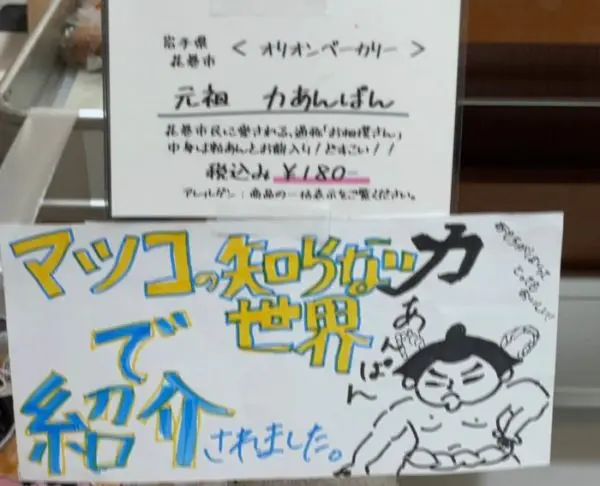 岩手県
花巻市
＜ オリオンベーカリー ＞
元祖 力あんぱん
花巻市民に愛される、通称「お相撲さん」
中身は粒あんとお餅入り！どすこい！！
税込み ￥180-
アレルゲン：商品の一括表示をご覧ください。
マツコの知らない
世界
で
紹介されました。
力
あんぱん
おもちがはいって
とっても
おいしい!!